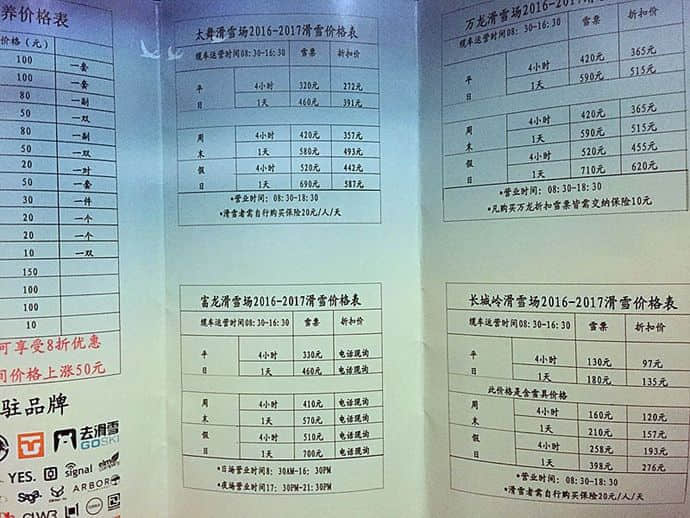 养价格表
价格(元)
100 一套
100 一套
80 一副
50 一双
80 一副
50 一双
20 一对
50 一套
30 一件
20 一个
20 一个
10 一双
150
100
100
10
可享受8折优惠
间价格上涨50元
驻品牌
去滑雪
GOSKI
YES.
signal
elm
ARBOR
太舞滑雪场2016-2017滑雪价格表
缆车运营时间08:30-16:30 雪票 折扣价
平日 4小时 320元 272元
1天 460元 391元
周末 4小时 420元 357元
1天 580元 493元
假日 4小时 520元 442元
1天 690元 587元
*营业时间:08:30-18:30
*滑雪者需自行购买保险20元/人/天
富龙滑雪场2016-2017滑雪价格表
缆车运营时间08:30-16:30 雪票 折扣价
平日 4小时 330元 电话现询
1天 460元 电话现询
周末 4小时 410元 电话现询
1天 570元 电话现询
假日 4小时 510元 电话现询
1天 700元 电话现询
*日场营业时间8:30AM-16:30PM
*夜场营业时间17:30PM-21:30PM
万龙滑雪场2016-2017滑雪价格表
缆车运营时间08:30-16:30 雪票 折扣价
平日 4小时 420元 365元
1天 590元 515元
周末 4小时 420元 365元
1天 590元 515元
假日 4小时 520元 455元
1天 710元 620元
*营业时间:08:30-18:30
*凡购买万龙折扣雪票皆需交纳保险10元
长城岭滑雪场2016-2017滑雪价格表
缆车运营时间08:30-16:30 雪票 折扣价
平日 4小时 130元 97元
1天 180元 135元
此价格是含雪具价格
周末 4小时 160元 120元
1天 210元 157元
假日 4小时 258元 193元
1天 398元 276元
*营业时间:08:30-18:30
*滑雪者需自行购买保险20元/人/天